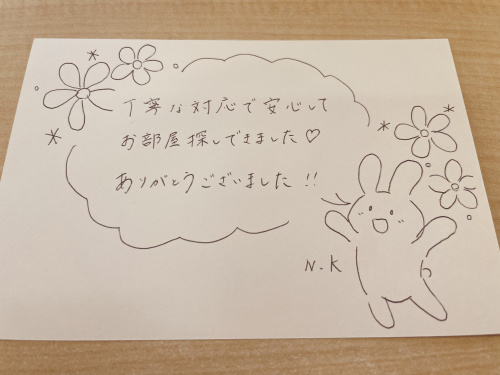 丁寧な対応で安心して
お部屋探しできました♡
ありがとうございました!!
N.K